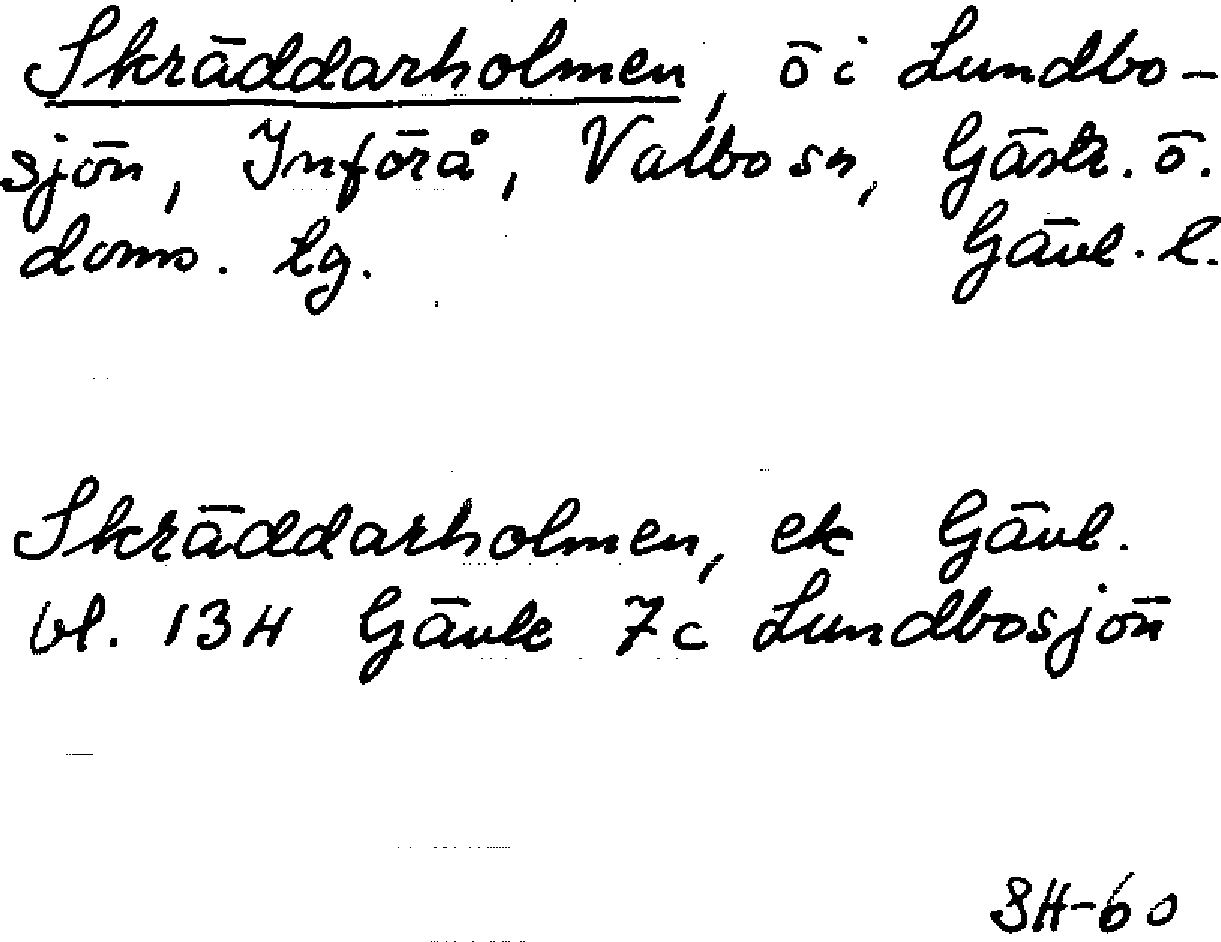 Skräddarholmen, ö i Lundbo-
sjön, Införå, Valbo sn, Gästr. ö.
doms. lg. Gävl. l.
Skräddarholmen, ek Gävl.
bl. 13H Gävle 7c Lundbosjön
SH-60